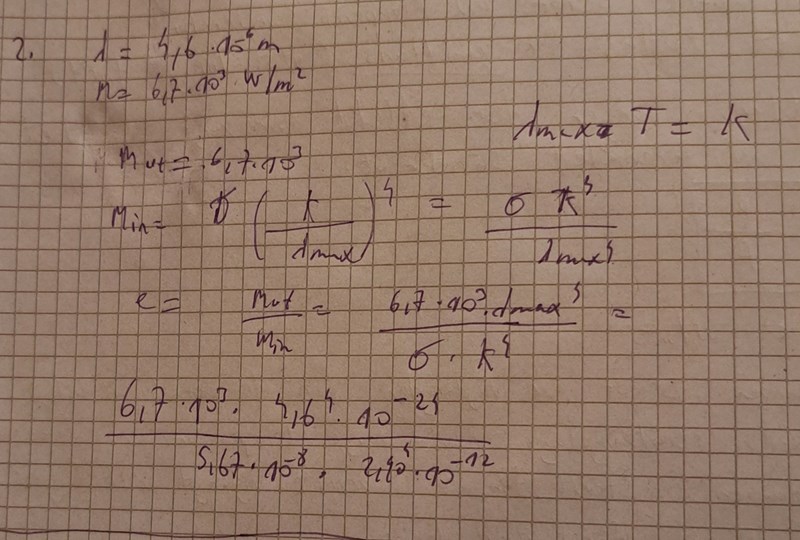 2. λ = 4,6 · 10⁻⁶ m
M = 6,7 · 10³ · W/m²
λmax · T = k
Mut = 6,7 · 10³
Min = σ (k / λmax)⁴ = σ k⁴ / λmax⁴
e = Mut / Min = 6,7 · 10³ · λmax⁴ / σ · k⁴ =
6,7 · 10³ · 4,6⁴ · 10⁻²⁴ / 5,67 · 10⁻⁸ · 2,90⁴ · 10⁻¹²